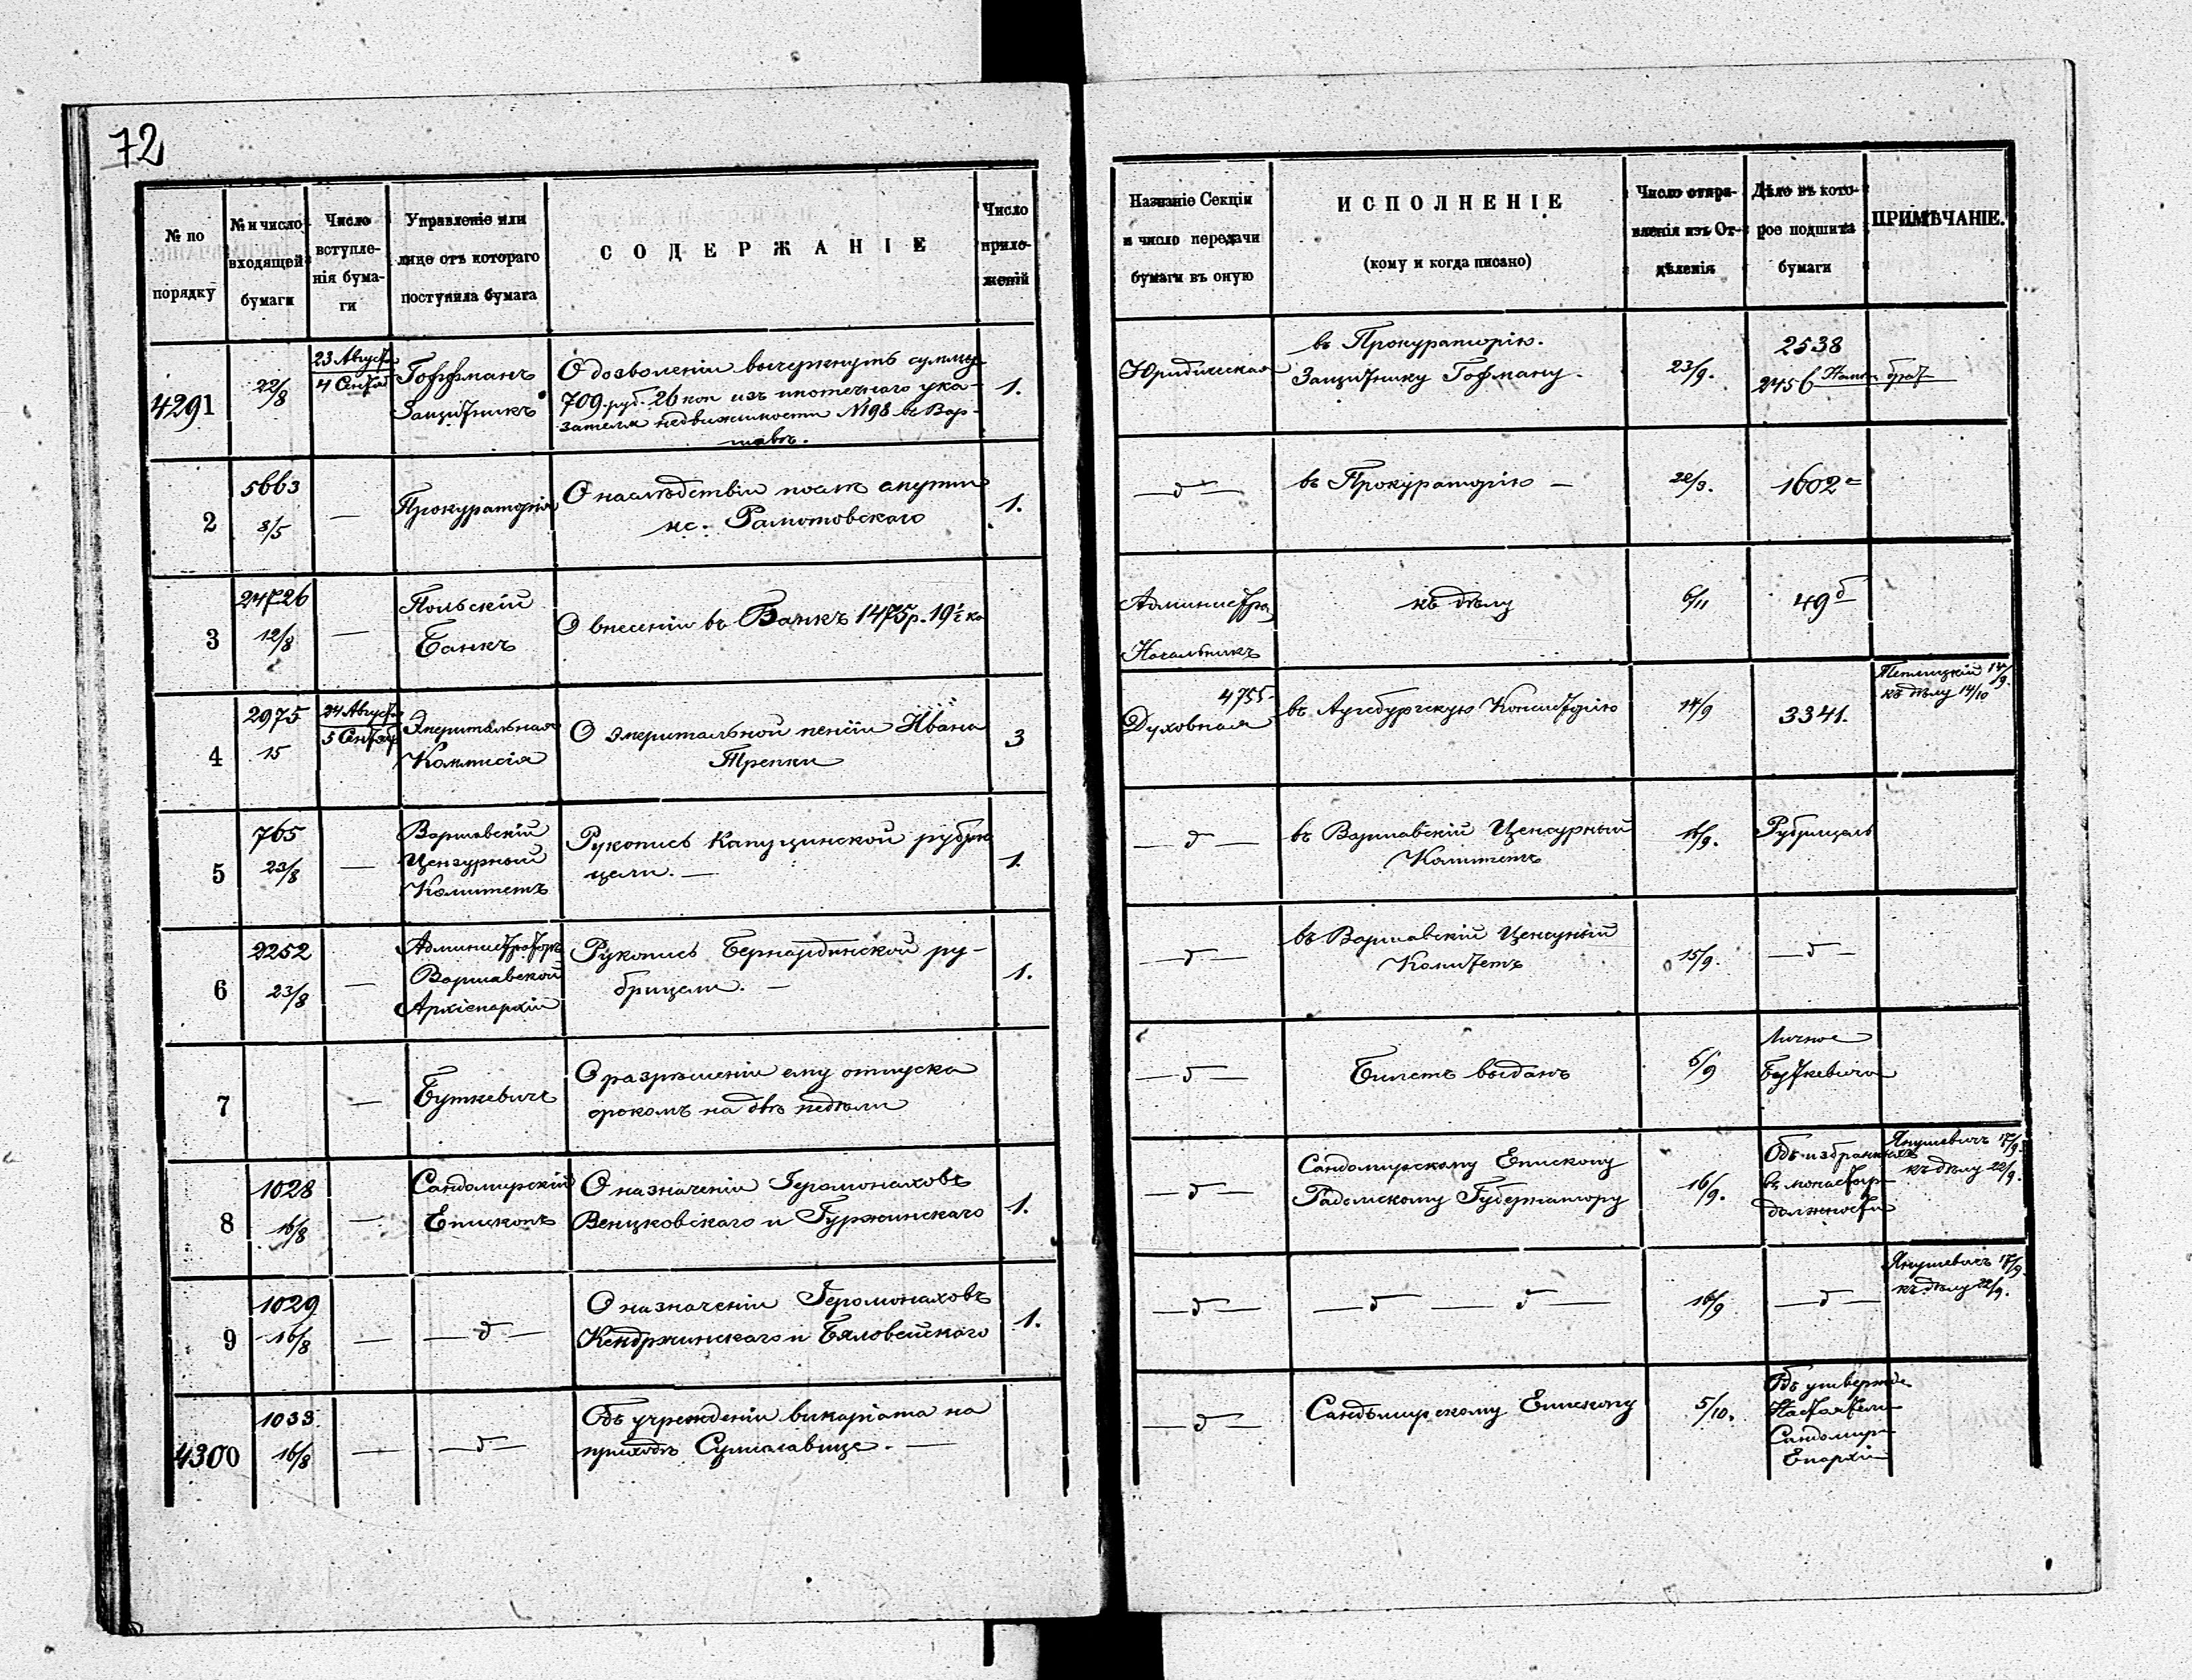 72
№ по
порядку
№ и число
входящей
бумаги
Число
вступле-
нія бума-
ги
Управленіе или
лице отъ котораго
поступила бумага
СОДЕРЖАНІЕ
Число
прило-
женій
Названіе Секціи
и число передачи
бумаги въ оную
ИСПОЛНЕНІЕ
(кому и когда писано)
Число отпра-
вленія изъ От-
дѣленія
Дѣло въ кото-
рое подшита
бумаги
ПРИМѢЧАНІЕ.
4291
22/8
23 Август
4 Сентя
Гоффманъ
Защитникъ
О дозволеніи вычеркнуть суммы
709 руб. 26 коп изъ ипотечнаго ука-
зателя недвижимости №98 въ Вар-
шавѣ.
1.
Юридическая
въ Прокураторію.
Защитнику Гофману.
23/9.
2538
2456
2
5663
8/5
—
Прокураторія
О наслѣдствѣ послѣ
кс. Рамотовскаго
1.
—д—
въ Прокураторію —
22/9.
1602
3
24726
12/8
—
Польскій
Банкъ
О внесеніи въ Банкъ 1475р. 19½ ко
Администра
Начальникъ
къ дѣлу
6/11
49 б
4
2975
15
24 Август
5 Сентяб
Эмеритальная
Коммисія
О эмеритальной пенсіи Ивана
Трепки
3
4755
Духовная
въ Аугсбургскую Консисторію
14/9
3341.
14/9.
къ дѣлу 14/10
5
765
23/8
—
Варшавскій
Цензурный
Комитетъ
Рукопись Капуцинской рубри
цели. —
1.
—д—
въ Варшавскій Цензурный
Комитетъ
16/9.
Рубрицель
6
2252
23/8
—
Администраторъ
Варшавской
Архіепархіи
Рукопись Бернардинской ру-
брицели. —
1.
—д—
въ Варшавскій Ценсурный
Комитетъ
15/9.
—д—
7
—
Буткевичъ
О разрѣшеніи ему отпуска
срокомъ на двѣ недѣли
—д—
Билетъ выданъ
6/9
Личное
Буткевича
8
1028
16/8
—
Сандомирскій
Епископъ
О назначеніи Іеромонаховъ
Венцковскаго и Гуржинскаго
1.
—д—
Сандомирскому Епископу
Радомскому Губернатору
16/9.
Объ избранныхъ
въ монастыр
должности
Янушевичъ 17/9.
къ дѣлу 22/9.
9
1029
16/8
—
—д—
О назначеніи Іеромонаховъ
Кендржинскаго и Бяловейскаго
1.
—д—
—д— —д—
16/9
—д—
Янушевичъ 17/9.
къ дѣлу 22/9.
4300
1033
16/8
—
—д—
Объ учрежденіи викаріата на
приходъ Сулиславице. —
—д—
Сандомирскому Епископу
5/10.
Объ утвержде
Настоятели
Сандомир
Епархіи